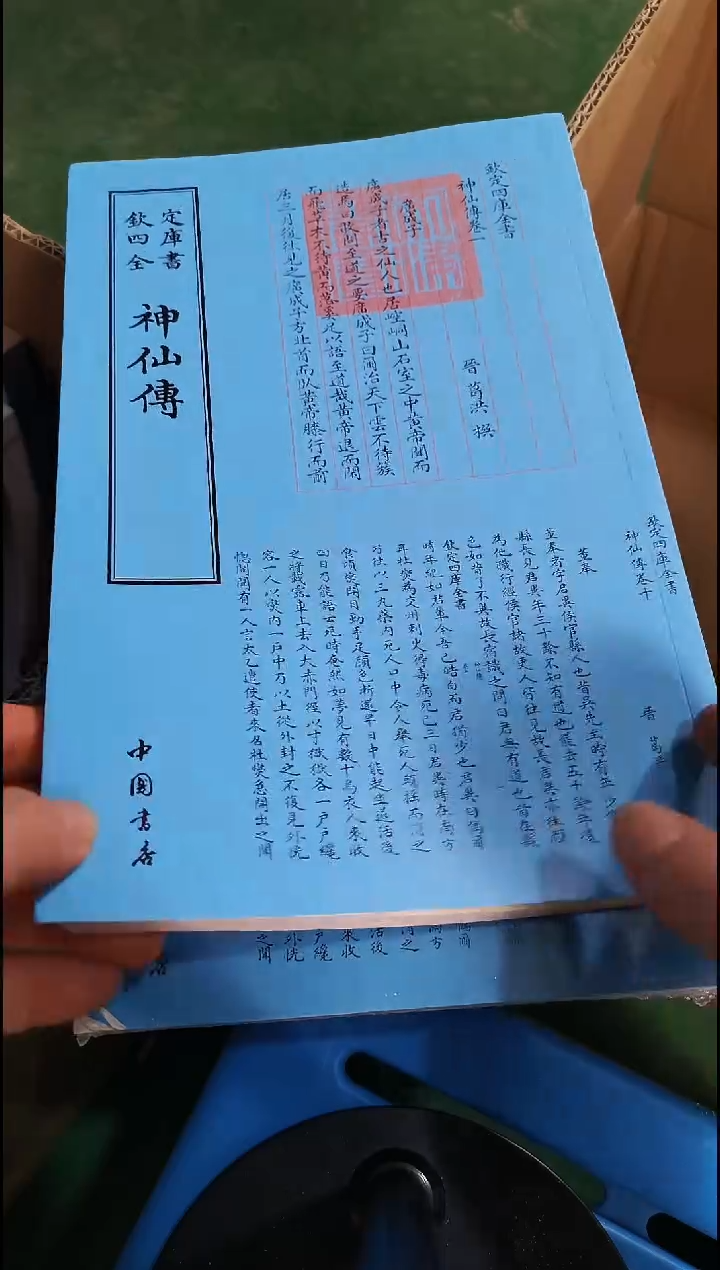 欽定
四庫
全書
神仙傳
中國書店
欽定四庫全書
神仙傳卷一
晉 葛洪 撰
廣成子
廣成子者古之仙人也居崆峒山石室之中黄帝聞而
造焉曰敢問至道之要廣成子曰爾治天下雲不待簇
而飛草木不待黄而落奚足以語至道哉黄帝退而閒
居三月後往見之廣成子方北首而臥黄帝膝行而前
欽定四庫全書
神仙傳卷十
晉 葛
董奉
董奉者字君異侯官縣人也昔吳先主時有年少
縣長見君異年三十餘不知有道也罷去五十餘年後
為他職行經侯官諸故吏人皆往見故長君異亦往顏
色如昔了不異故長宿識之問曰君無有道也昔在縣
欽定四庫全書
時年紀如君輩今吾已皓白而君猶少也君異曰偶爾
耳杜燮為交州刺史得毒病死已三日君異時在南方
乃往以三丸藥內死人口中令人舉死人頭搖而消之
食頃燮開目動手足顏色漸還半日中能起坐遂活後
四日乃能語云死時奄然如夢見有數十烏衣人來收
之將載露車上去入大赤門徑以寸獄獄各一戶戶纔
容一人以燮內一戶中乃以土從外封之不復見外恍
惚聞有一人言太乙遣使者來召杜燮急開出之聞